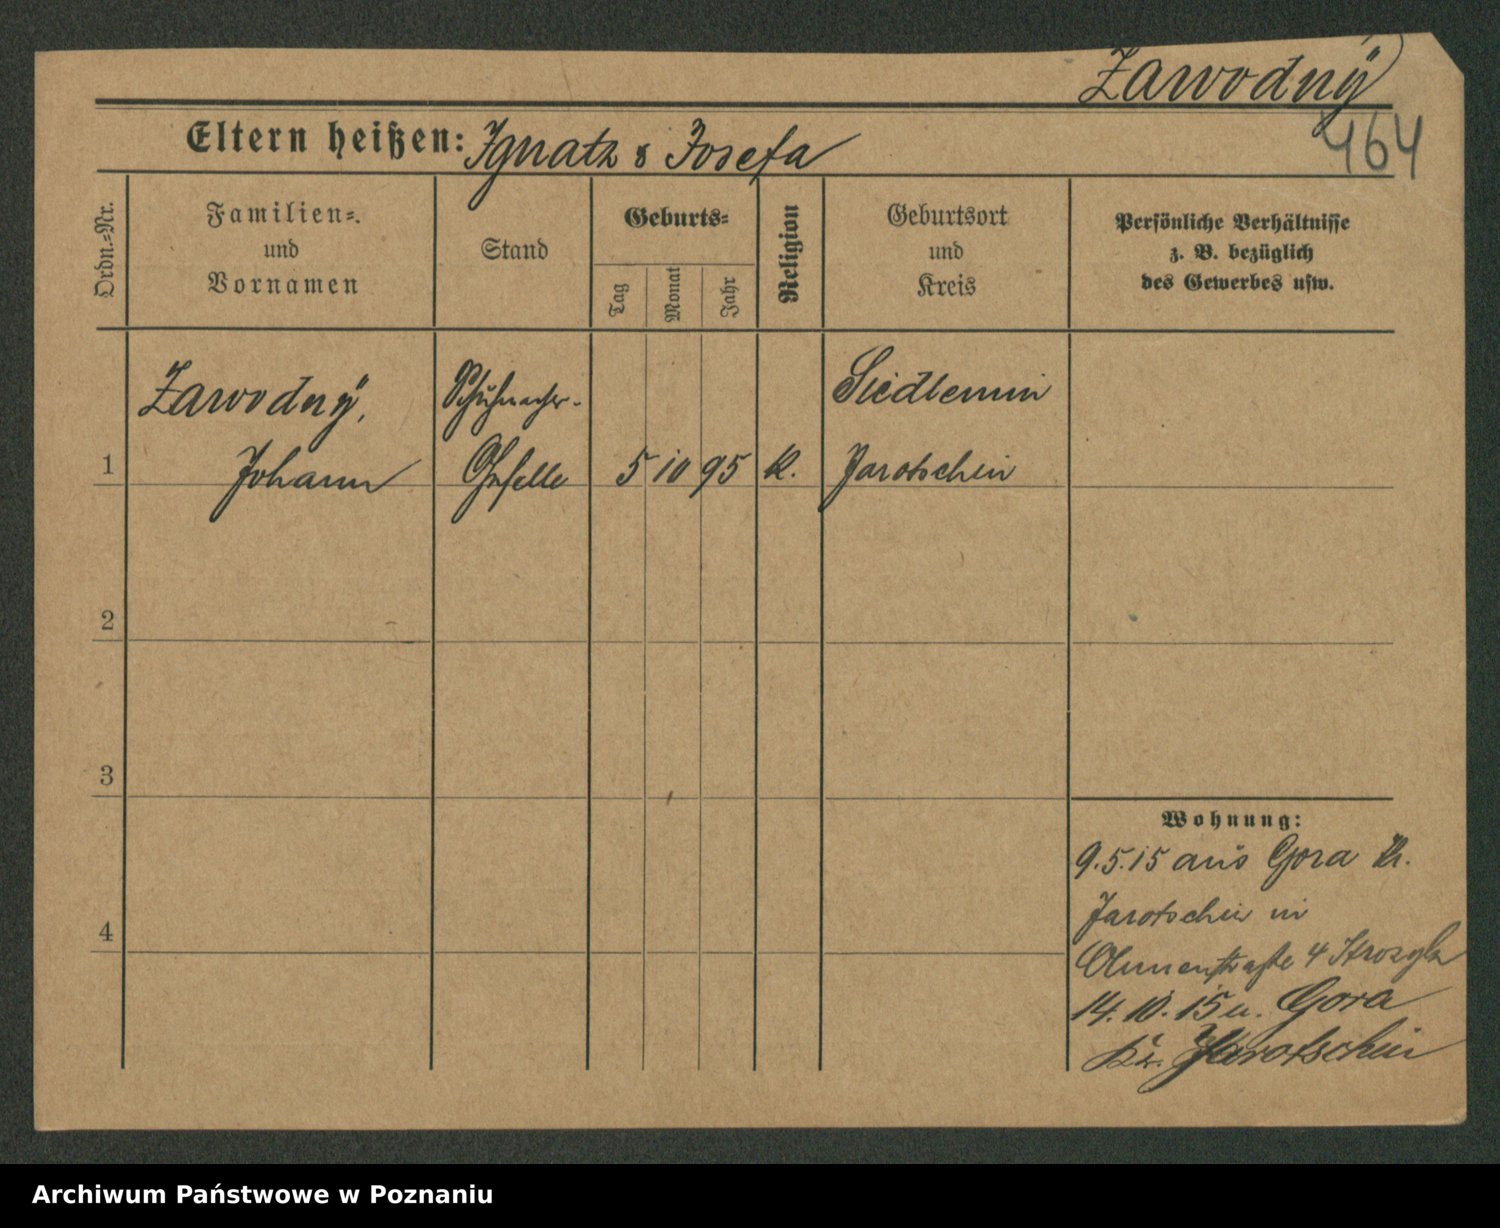 Zawodnÿ
464
Eltern heißen: Ignatz & Josefa
Ordn.=Nr.
Familien=
und
Vornamen
Stand
Geburts=
Tag
Monat
Jahr
Religion
Geburtsort
und
Kreis
Persönliche Verhältnisse
z. B. bezüglich
des Gewerbes usw.
1
Zawodnÿ,
Johann
Schuhmacher-
Geselle
5 10 95
K.
Siedlemin
Jarotschin
2
3
4
Wohnung:
9.5.15 aus Gora Kr.
Jarotschin in
4
14.10.15 n. Gora
Kr. Jarotschin
Archiwum Państwowe w Poznaniu